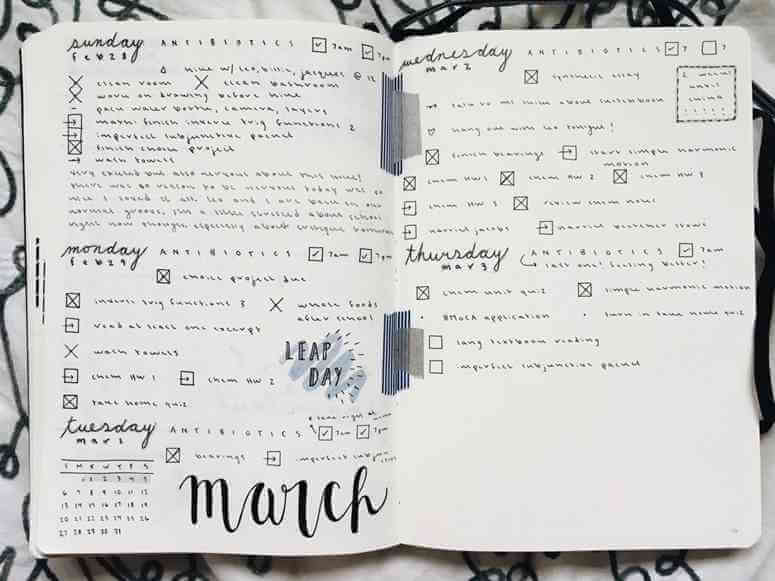 sunday ANTIBIOTICS 7am 7pm
feb 28
clean room clean bathroom
work on drawing before hike
pack water bottle, camera, layers
math: finish inverse trig functions 2
imperfect subjunctive packet
finish choice project
wash towels
very excited but also nervous about this hike!
there was no reason to be nervous today was so
nice I loved it all. Leo and I are back in our
normal groove, I'm a little stressed about school
right now though especially about
monday ANTIBIOTICS 7am 7pm
feb 29
choice project due
inverse trig functions 3 whole foods
after school
read at least one excerpt
LEAP
DAY
wash towels
chem HW 1 chem HW 2
take home quiz
tuesday ANTIBIOTICS 7am 7pm
mar 1
bearings imperfect subjun
S M T W T F S
1 2 3 4 5
6 7 8 9 10 11 12
13 14 15 16 17 18 19
20 21 22 23 24 25 26
27 28 29 30 31
march
wednesday ANTIBIOTICS 7 7
mar 2
synthesis essay
2 weeks
until
china
talk to about sketchbook
hang out with leo tonight!
finish bearings start simple harmonic
motion
chem HW 1 chem HW 2 chem HW 3
chem HW 3 review chem notes
harriet jacobs harriet beecher stowe
thursday ANTIBIOTICS 7am
mar 3 last one! feeling better!
chem unit quiz simple harmonic motion
BMoCA application turn in take home quiz
lang textbook reading
imperfect subjunctive packet